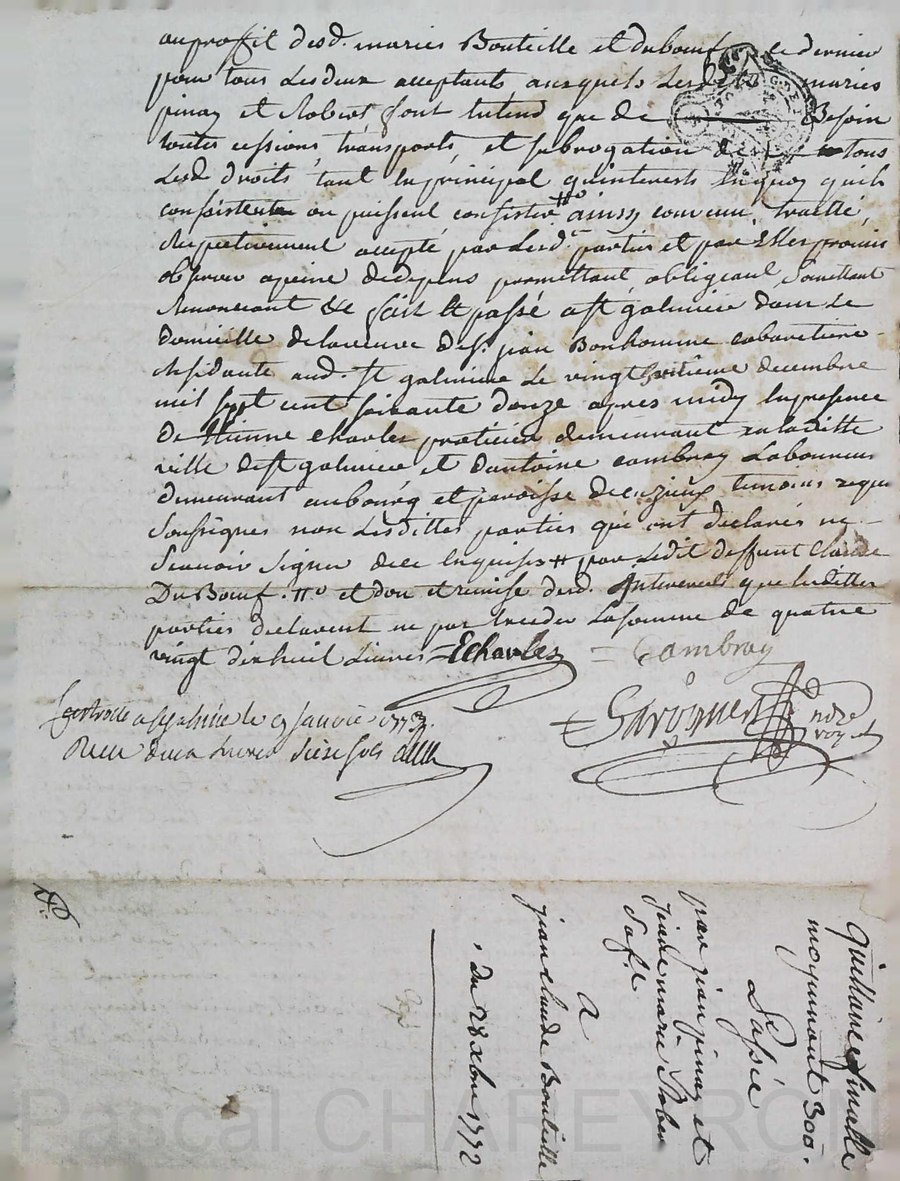 au proffit desd. mariés Bouteille et duboeuf ce dernier
pour tous lesdeux acceptants auxquels lesd. mariés
pinay et Robert font entend que de Besoin
toutes cessions transports et subrogation de tous
lesd. droits tant en principal qu'interests en quoy quils
consistent ou puissent consister #o ainsy convenu, traitté,
respectivement accepté par lesd. parties et par Elles promis
observer a peine dedepens permettant, obligeant, soumettant
Renoncant &c fait et passé a st galmier dans le
domicille delaveuve de sr. jean Bonhomme cabaretiere
residante aud. st galmier le vingthuitieme decembre
mil sept cent soixante douze apres midy en presence
de Etienne charles praticien demeurant en laditte
ville de st galmier et d'antoine cambray Laboureur
demeurant au bourg et paroisse de cuzieux temoins requis
soussignés non lesdittes parties qui ont declarés ne
scavoir signer dece enquises # par ledit deffunt claude
Du Boeuf. #o et don et remise desd. interests que lesdittes
parties declarent ne pas exceder la somme de quatre
vingt dixhuit Livres = Echarles = Cambray
Controllé a st galmier le 9 janvier 1773.
Recu deux livres seize sols
nore
roy al
Quittance finalle
moyennant 300.
Passée
par jean pinay et
jeanne marie Rober
sa fe.
a
jean claude Bouteille
du 28 xbre 1772
Pascal CHAREYRON